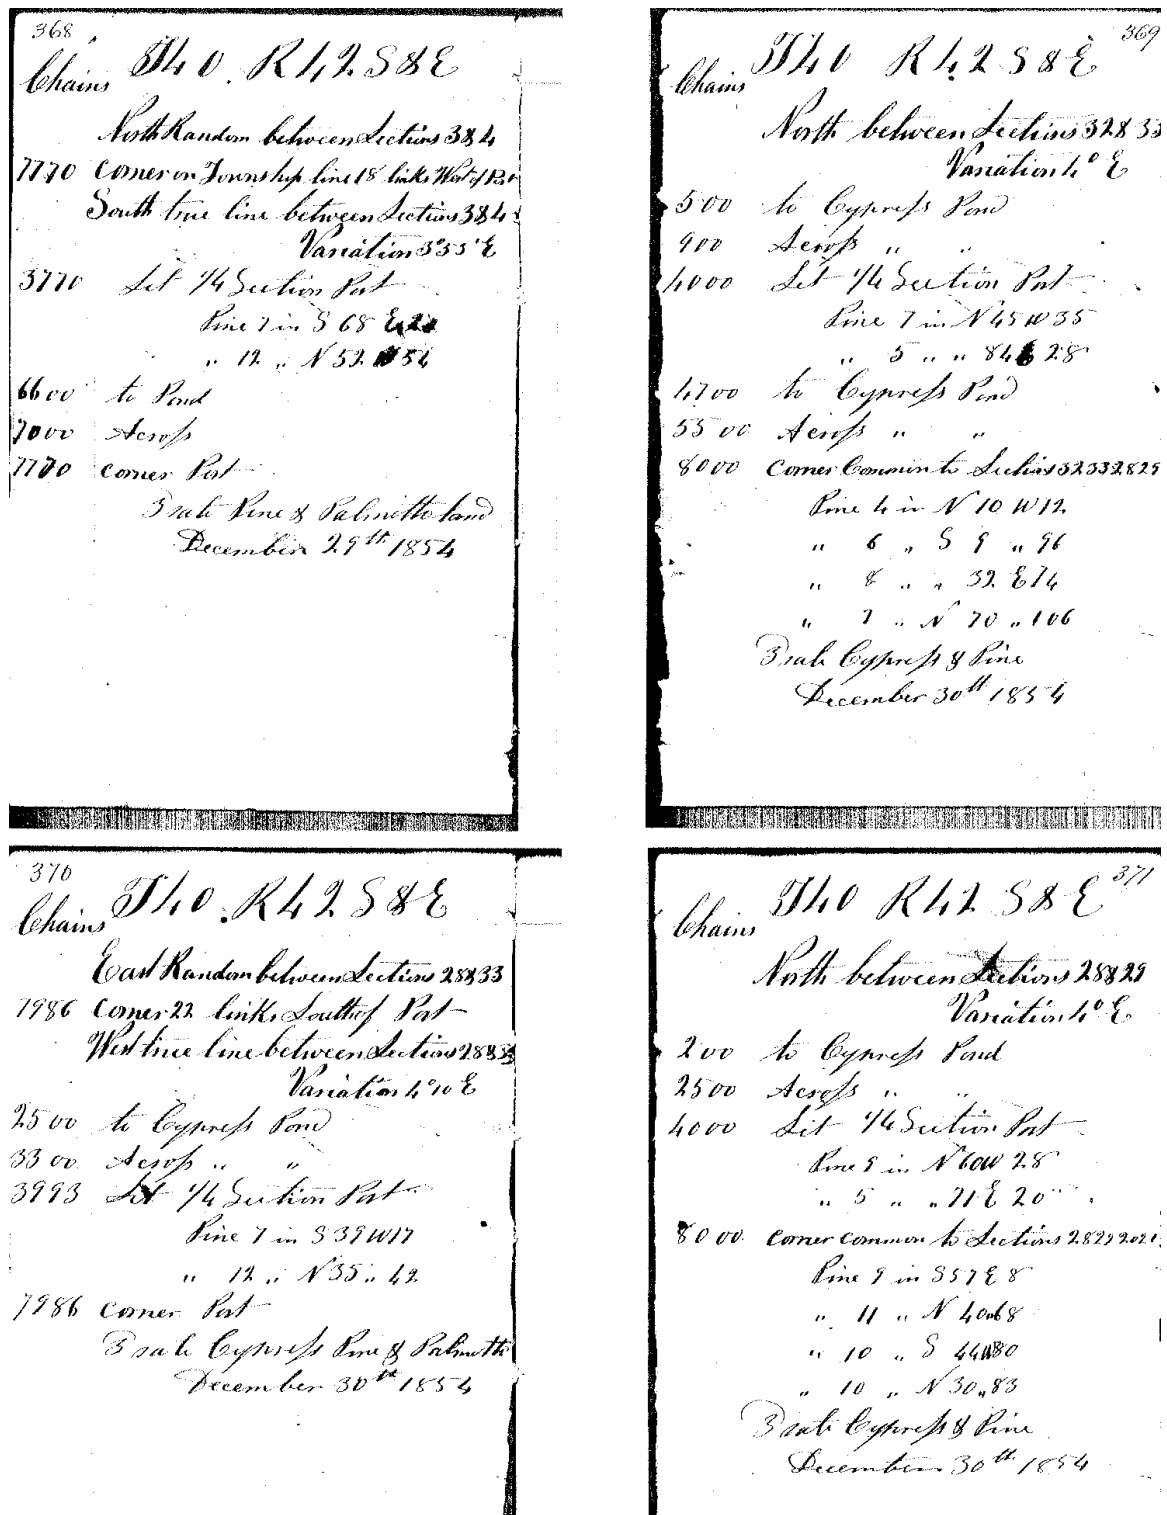 368
T40 R42 S&E
Chains
North Random between Sections 3&4
7770 Corner on Township line 18 links West of Post
South true line between Sections 3&4
Variation 3°55' E
3770 Set 1/4 Section Post
Pine 7 in S 68 E
" 12 " N 52 W 54
6600 to Pond
7000 Across
7770 Corner Post
3 rate Pine & Palmetto land
December 29th 1854
369
T40 R42 S&E
Chains
North between Sections 32&33
Variation 4° E
500 to Cypress Pond
900 Across " "
4000 Set 1/4 Section Post
Pine 7 in N 45 W 35
" 5 " " 84 E 28
4700 to Cypress Pond
5500 Across " "
8000 Corner Common to Sections 32 33 28 29
Pine 4 in N 10 W 12
" 6 " S 9 " 96
" 8 " " 32 E 74
" 7 " N 70 " 106
3 rate Cypress & Pine
December 30th 1854
370
T40 R42 S&E
Chains
East Random between Sections 28&33
7986 Corner 22 links South of Post
West true line between Sections 28&33
Variation 4°10 E
2500 to Cypress Pond
3300 Across " "
3993 Set 1/4 Section Post
Pine 7 in S 39 W 17
" 12 " N 35 " 42
7986 Corner Post
3 rate Cypress Pine & Palmetto
December 30th 1854
371
T40 R42 S&E
Chains
North between Sections 28&29
Variation 4° E
200 to Cypress Pond
2500 Across " "
4000 Set 1/4 Section Post
Pine 9 in N 60 W 28
" 5 " " 71 E 20
8000 Corner Common to Sections 28 29 20 21
Pine 9 in S 57 E 8
" 11 " N 40 " 68
" 10 " S 44 W 80
" 10 " N 30 " 83
3 rate Cypress & Pine
December 30th 1854